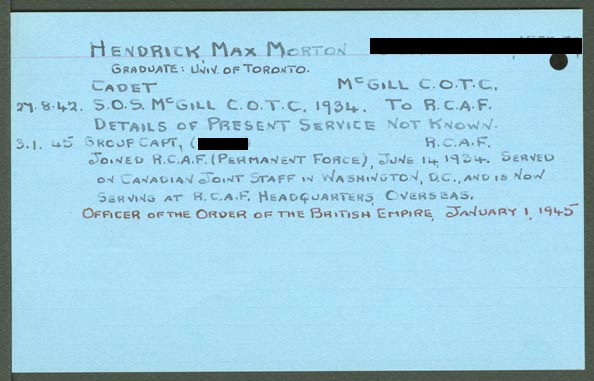 HENDRICK MAX MORTON
GRADUATE: UNIV. OF TORONTO.
CADET McGILL C.O.T.C.
27.8.42. S.O.S. McGILL C.O.T.C. 1934. TO R.C.A.F.
DETAILS OF PRESENT SERVICE NOT KNOWN.
3.1.45 GROUP CAPT, ( ) R.C.A.F.
JOINED R.C.A.F. (PERMANENT FORCE), JUNE 14, 1934. SERVED
ON CANADIAN JOINT STAFF IN WASHINGTON, D.C., AND IS NOW
SERVING AT R.C.A.F. HEADQUARTERS, OVERSEAS.
OFFICER OF THE ORDER OF THE BRITISH EMPIRE, JANUARY 1, 1945